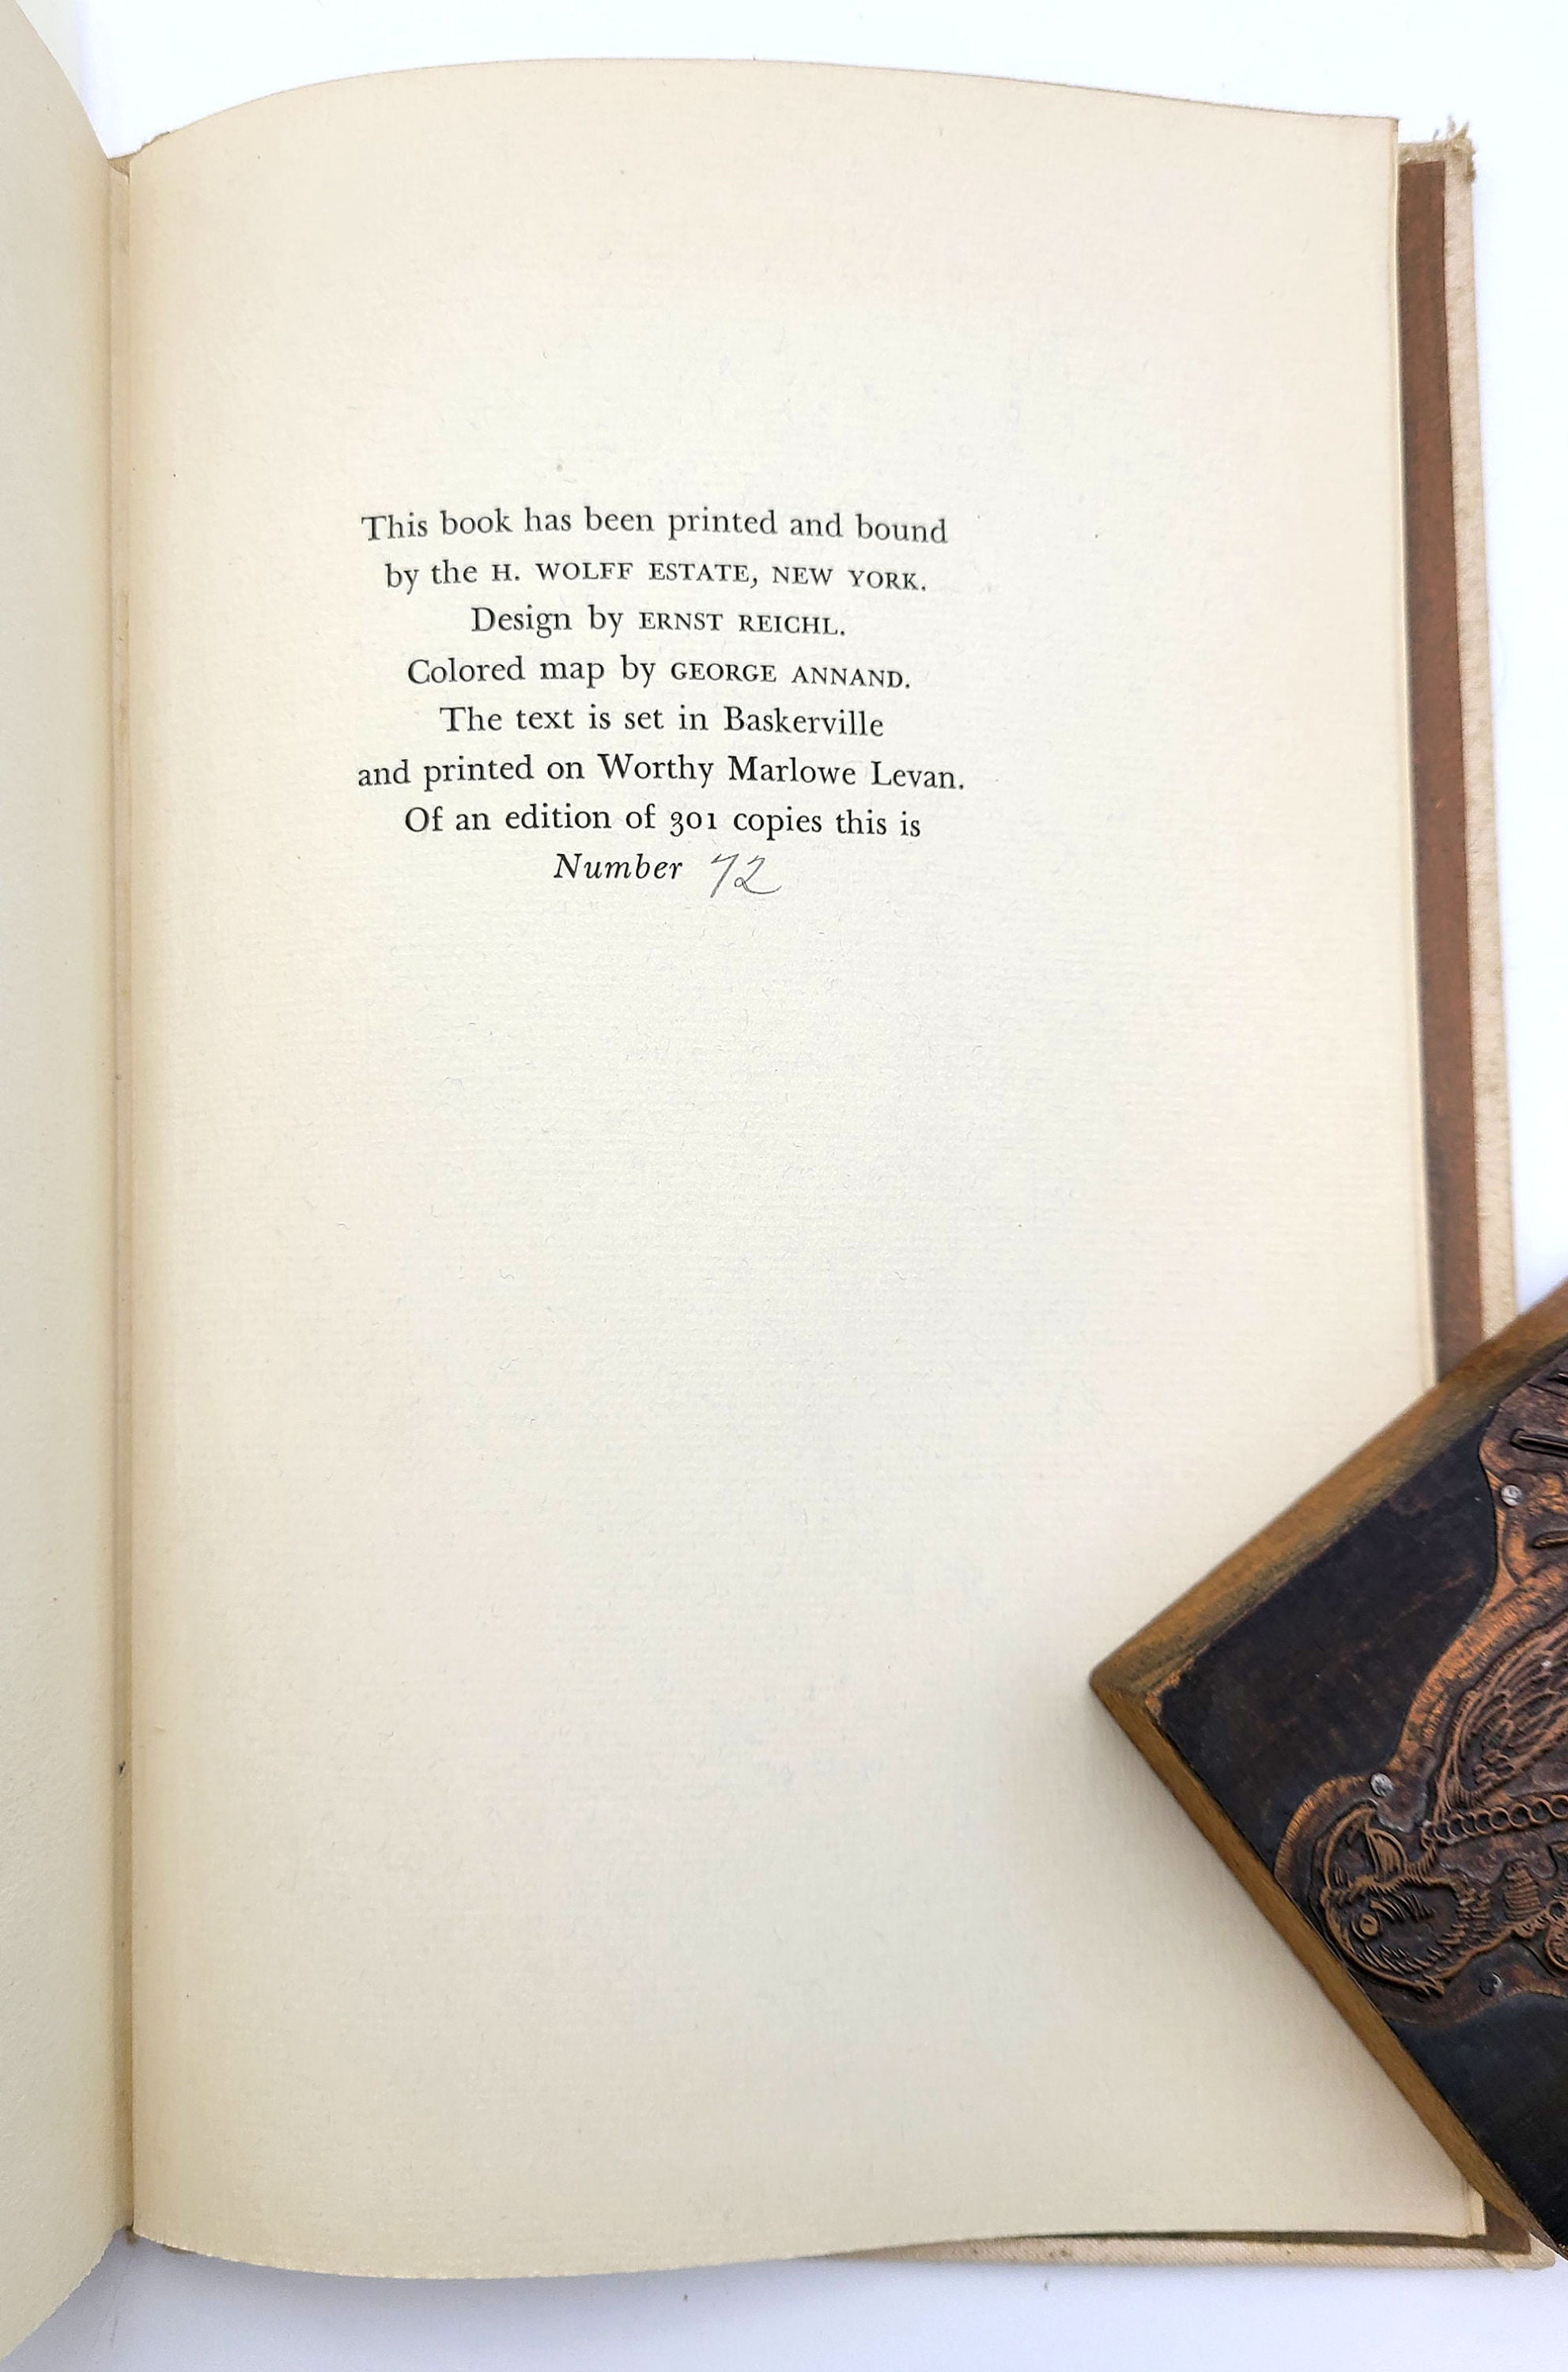 This book has been printed and bound
by the H. WOLFF ESTATE, NEW YORK.
Design by ERNST REICHL.
Colored map by GEORGE ANNAND.
The text is set in Baskerville
and printed on Worthy Marlowe Levan.
Of an edition of 301 copies this is
Number 72